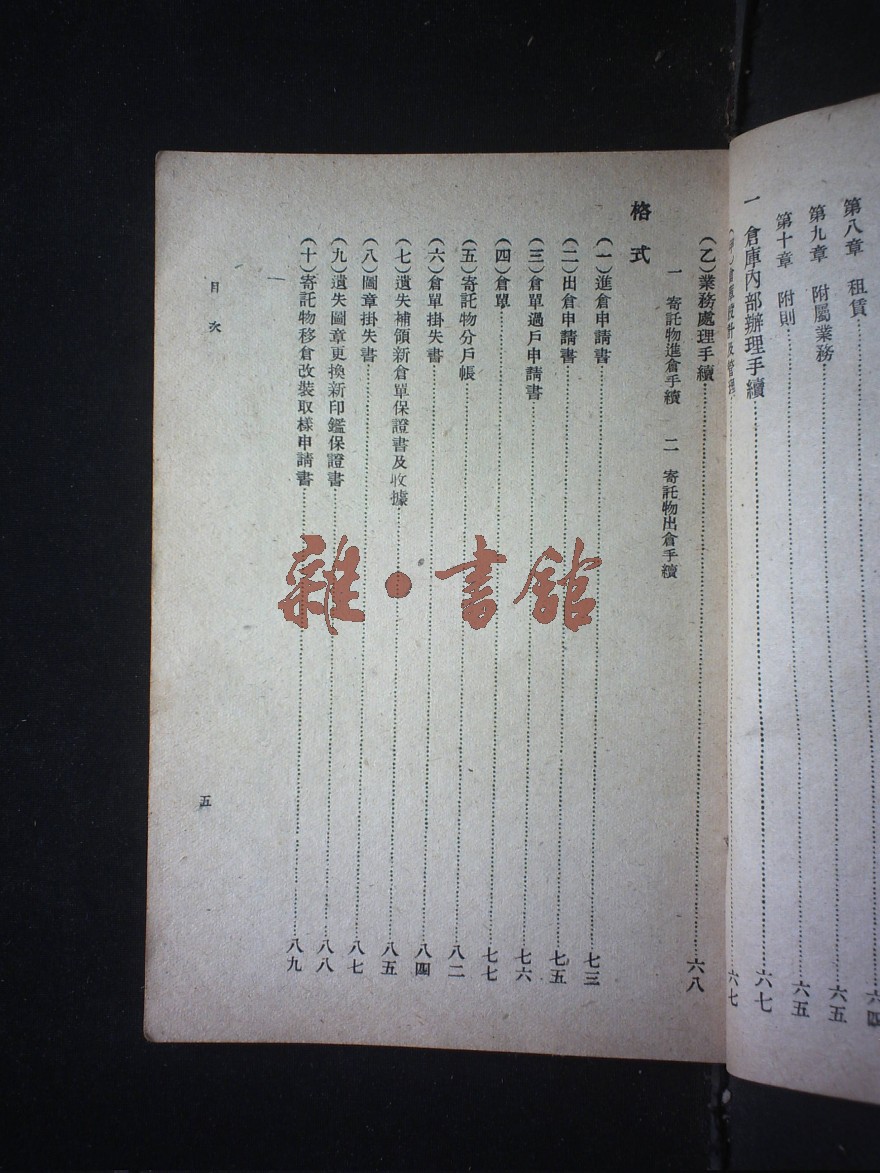 第八章 租賃……六四
第九章 附屬業務……六五
第十章 附則……六五
一 倉庫內部辦理手續……六七
六七
(乙)業務處理手續……六八
一 寄託物進倉手續 二 寄託物出倉手續
格式
(一)進倉申請書……七三
(二)出倉申請書……七五
(三)倉單過戶申請書……七六
(四)倉單……七七
(五)寄託物分戶帳……八二
(六)倉單掛失書……八四
(七)遺失補領新倉單保證書及收據……八五
(八)圖章掛失書……八七
(九)遺失圖章更換新印鑑保證書……八八
(十)寄託物移倉改裝取樣申請書……八九
目次
五
雜·書館